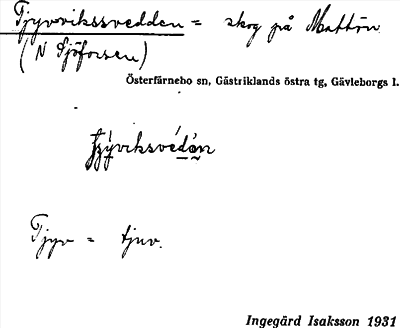 Tjyvvikssvedden = skog på Mattön
(N Sjöforsen)
Österfärnebo sn, Gästriklands östra tg, Gävleborgs l.
Tjyv = tjuv.
Ingegärd Isaksson 1931